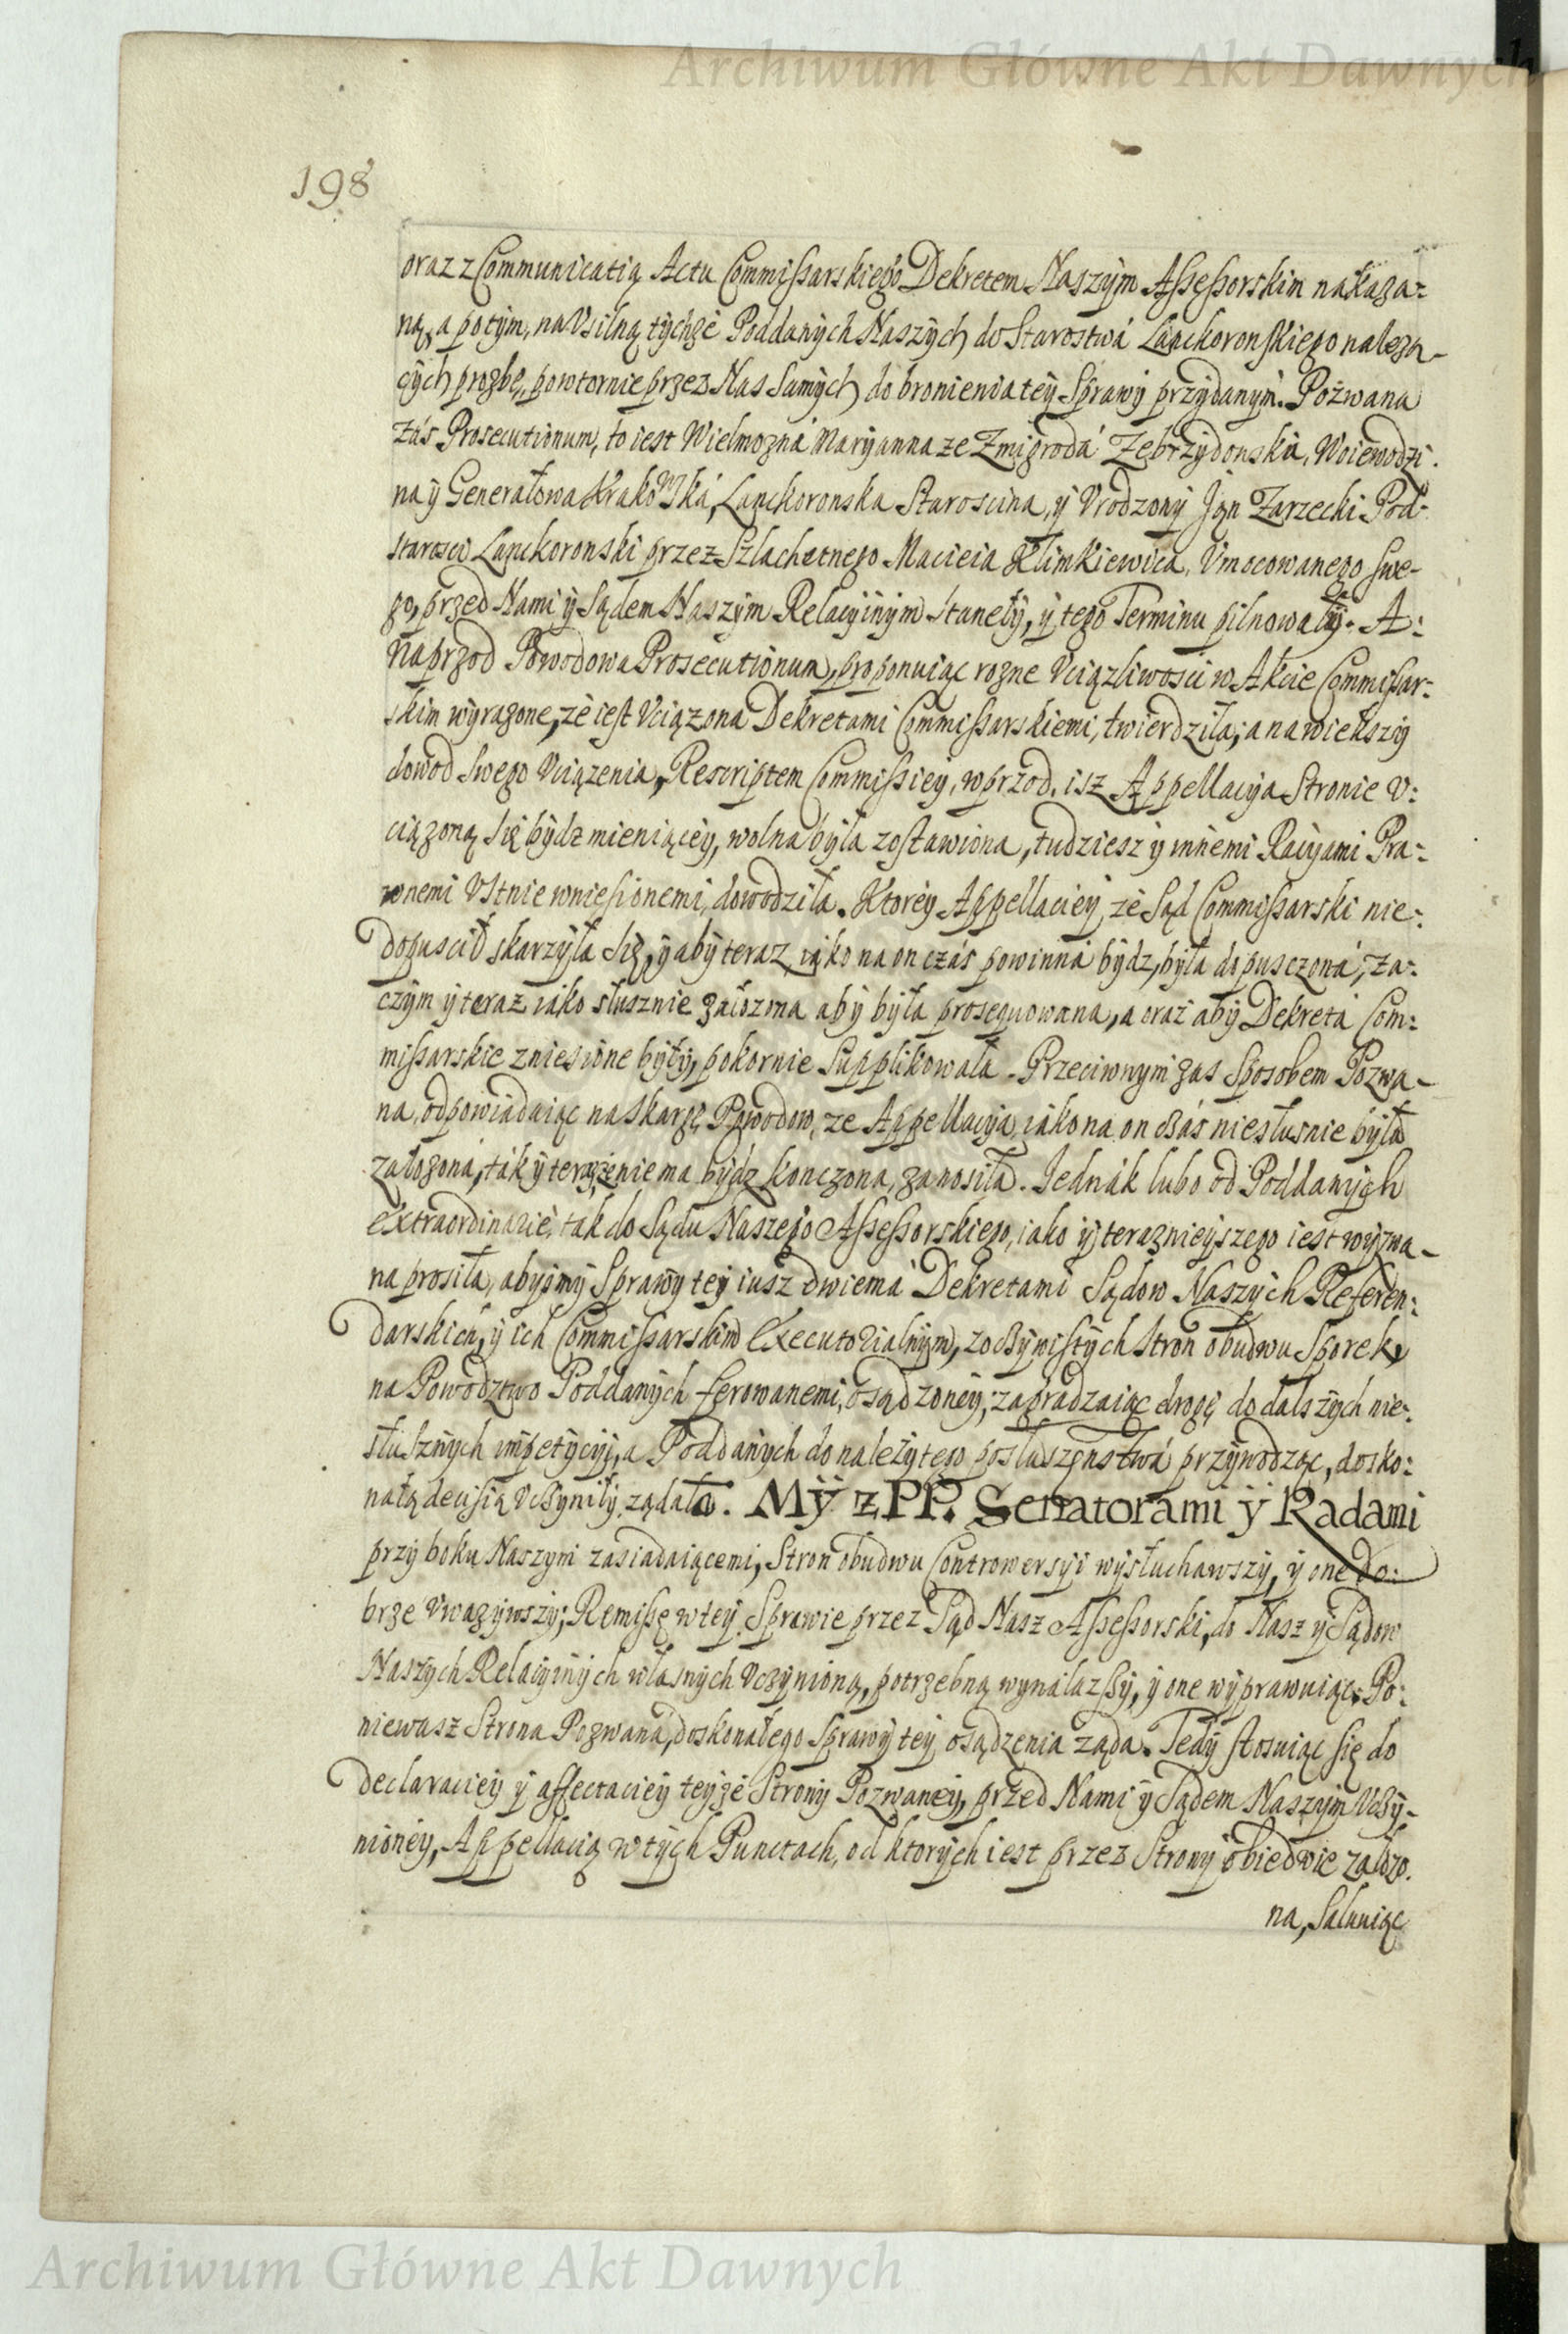 Archiwum Główne Akt Dawnych
198
oraz z Communicatią Actu Commissarskiego Dekretem Naszym Assessorskim nakaza:
ną, a potym, na Vsilną tychże Poddanych Naszych do Starostwá Lanckoronskiego należą-
cych prozbę, powtornie przez Nas Samych do bronienia tey Sprawy przydanym. Pozwana
záś Prosecutionum, to iest Wielmozná Maryanna ze Zmigrodá Zebrzydowska, Woiewodzi-
na y Generałowa Krakowska, Lanckoronska Staroscina, y Vrodzony Jan Zarzecki Pod-
starosci Lanckoronski przez Szlachetnego Macieia Klimkiewica, Vmocowanego swe-
go, przed Nami y Sądem Naszym Relacyinym stanęły, y tego Terminu pilnowały. A:
naprzod Powodowa Prosecutionum, proponuiąc rozne Vciązliwosci w Akcie Commissar:
skim wyrazone, że iest Vciązona Dekretami Commissarskiemi, twierdziła; a na większy
dowod swego Vciązenia, Rescriptem Commissiey, wprzod, isz Appellacya Stronie V:
ciązoną się bydz mieniącey, wolna była zostawiona, tudziesz y innemi Racyami Pra:
wnemi Vstnie wniesionemi, dowodziła. Ktorey Appellaciey, że Sąd Commissarski nie:
dopuscił skarzyła się, y aby teraz, iáko na on czás powinná bydz, była dopusczoná, za:
czym y teraz iáko słusznie założona aby była prosequowana, a oraz aby Dekretá Com:
missarskie zniesione były, pokornie supplikowała. Przeciwnym zas sposobem Pozwa-
na, odpowiadaiąc na skargę Powodow, że Appellacya, iako na on czás niesłusnie była
założoná, ták y teraz nie ma bydz konczona, zanosiła. Jednák lubo od Poddanych
extraordinarie, tak do Sądu Naszego Assessorskiego, iako y teraznieyszego iest wyzwa-
na prosiła, abysmy Sprawy tey iusz dwiemá Dekretami Sądow Naszych Referen:
darskich, y ich Commissarskim Executorialnym, z oczywistych stron obudwu Sporek,
na Powodztwo Poddanych ferowanemi, osądzoney, zagradzaiąc drogę do dalszych nie:
słusznych impetycyi, a Poddanych do należytego posłuszenstwá przywodząc, dosko:
nałą decisią vczynili, ządała. My z PP. Senatorami y Radami
przy boku Naszym zasiadaiącemi, Stron obudwu Controwersyi wysłuchawszy, y one do:
brze Vwazywszy; Remissę w tey Sprawie przez Sąd Nasz Assessorski, do Nasz y Sądow
Naszych Relacyinych własnych Vczynioną, potrzebną wynalazszy, y one wyprawuiąc; Po:
niewasz Strona Pozwaná, doskonałego Sprawy tey osądzenia ząda. Tedy stosuiąc się do
declaraciey y affectaciey teyże Strony Pozwaney, przed Nami y Sądem Naszym Vczy-
nioney, Appellacią w tych Punctach, od ktorych iest przez Strony obiedwie założo.
na, salwuiąc
Archiwum Główne Akt Dawnych